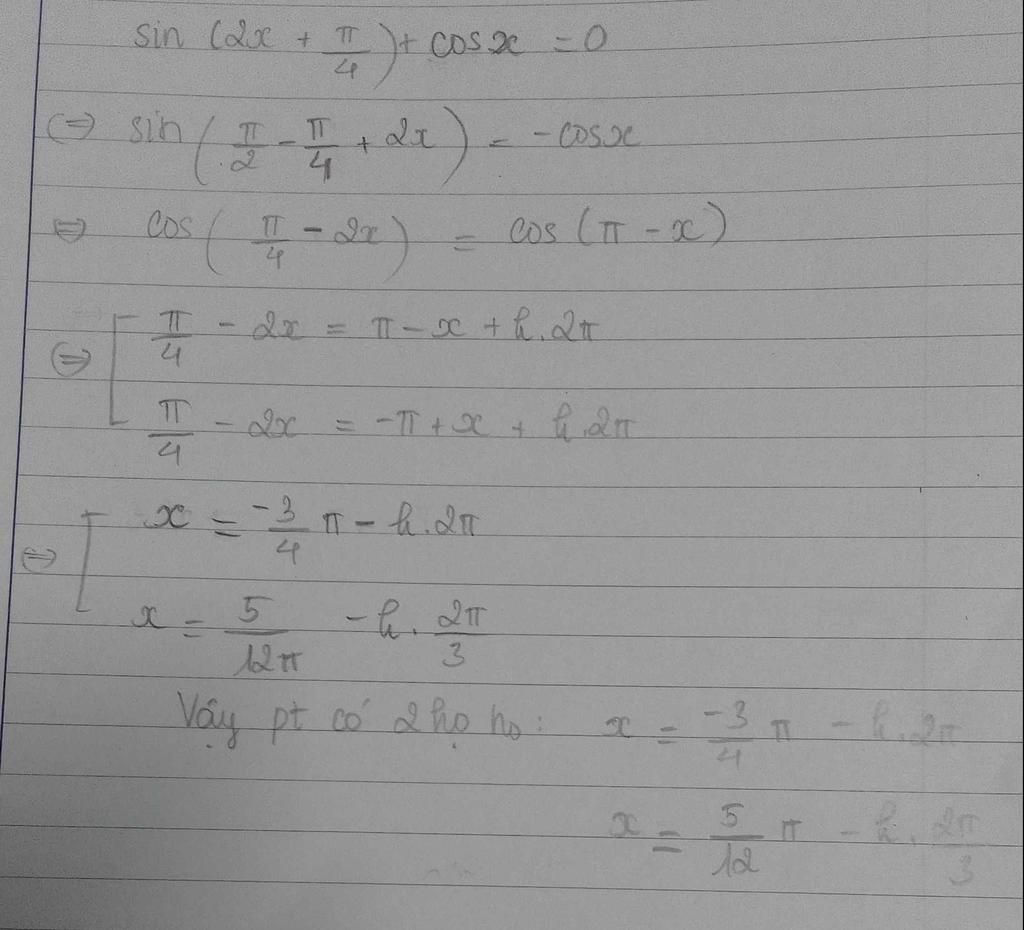 sin (2x + π/4) + cosx = 0
(=) sin (π/2 - π/4 + 2x) = -cosx
(=) cos (π/4 - 2x) = cos (π - x)
(=) [ π/4 - 2x = π - x + k.2π
π/4 - 2x = -π + x + k.2π
(=) [ x = -3/4 π - k.2π
x = 5/12π - k. 2π/3
Vậy pt có 2 họ no: x = -3/4 π - k.2π
x = 5/12 π - k. 2π/3